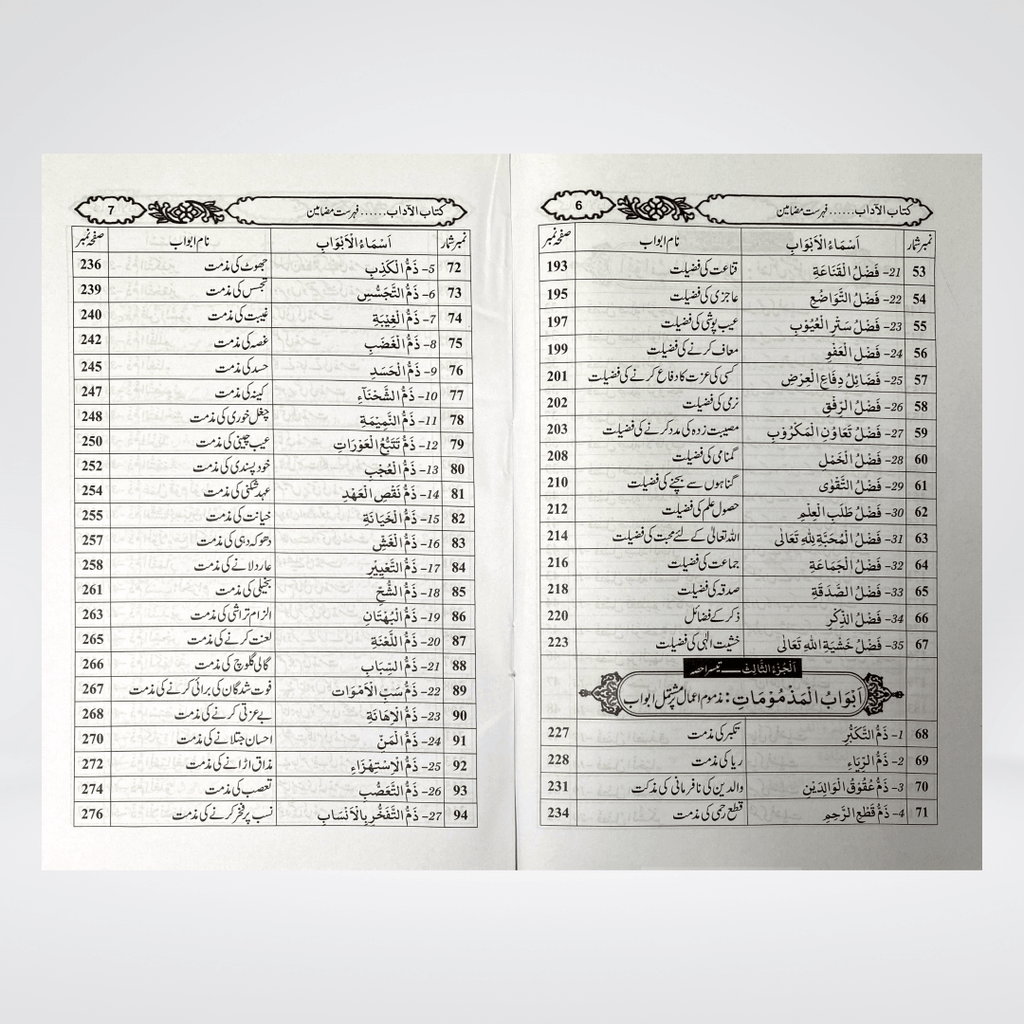 كتاب الآداب ...... فہرست مضامین 6
نمبر شمار اَسْمَاءُ الْاَبْوَابِ نام ابواب صفحہ نمبر
53 21- فَضْلُ الْقَنَاعَةِ قناعت کی فضیلت 193
54 22- فَضْلُ التَّوَاضُعِ عاجزی کی فضیلت 195
55 23- فَضْلُ سَتْرِ الْعُيُوْبِ عیب پوشی کی فضیلت 197
56 24- فَضْلُ الْعَفْوِ معاف کرنے کی فضیلت 199
57 25- فَضَائِلُ دِفَاعِ الْعِرْضِ کسی کی عزت کا دفاع کرنے کی فضیلت 201
58 26- فَضْلُ الرِّفْقِ نرمی کی فضیلت 202
59 27- فَضْلُ تَعَاوُنِ الْمَكْرُوْبِ مصیبت زدہ کی مدد کرنے کی فضیلت 203
60 28- فَضْلُ الْخَمْلِ گمنامی کی فضیلت 208
61 29- فَضْلُ التَّقْوٰى گناہوں سے بچنے کی فضیلت 210
62 30- فَضْلُ طَلَبِ الْعِلْمِ حصول علم کی فضیلت 212
63 31- فَضْلُ الْمُحَبَّةِ لِلّٰهِ تَعَالٰى اللہ تعالیٰ کے لئے محبت کی فضیلت 214
64 32- فَضْلُ الْجَمَاعَةِ جماعت کی فضیلت 216
65 33- فَضْلُ الصَّدَقَةِ صدقہ کی فضیلت 218
66 34- فَضْلُ الذِّكْرِ ذکر کے فضائل 220
67 35- فَضْلُ خَشْيَةِ اللّٰهِ تَعَالٰى خشیت الٰہی کی فضیلت 223
اَلْجُزْءُ الثَّالِثُ ــــ تیسرا حصہ
اَبْوَابُ الْمَذْمُوْمَاتِ: مذموم اعمال پر مشتمل ابواب
68 1- ذَمُّ التَّكَبُّرِ تکبر کی مذمت 227
69 2- ذَمُّ الرِّيَاءِ ریا کی مذمت 228
70 3- ذَمُّ عُقُوْقِ الْوَالِدَيْنِ والدین کی نافرمانی کی مذکت 231
71 4- ذَمُّ قَطْعِ الرَّحِمِ قطع رحمی کی مذمت 234
كتاب الآداب ...... فہرست مضامین 7
نمبر شمار اَسْمَاءُ الْاَبْوَابِ نام ابواب صفحہ نمبر
72 5- ذَمُّ الْكَذِبِ جھوٹ کی مذمت 236
73 6- ذَمُّ التَّجَسُّسِ تجسس کی مذمت 239
74 7- ذَمُّ الْغِيْبَةِ غیبت کی مذمت 240
75 8- ذَمُّ الْغَضَبِ غصہ کی مذمت 242
76 9- ذَمُّ الْحَسَدِ حسد کی مذمت 245
77 10- ذَمُّ الشَّحْنَآءِ کینہ کی مذمت 247
78 11- ذَمُّ النَّمِيْمَةِ چغل خوری کی مذمت 248
79 12- ذَمُّ تَتَبُّعِ الْعَوْرَاتِ عیب چینی کی مذمت 250
80 13- ذَمُّ الْعُجْبِ خود پسندی کی مذمت 252
81 14- ذَمُّ نَقْصِ الْعَهْدِ عہد شکنی کی مذمت 254
82 15- ذَمُّ الْخِيَانَةِ خیانت کی مذمت 255
83 16- ذَمُّ الْغَشِّ دھوکہ دہی کی مذمت 257
84 17- ذَمُّ التَّعْيِيْرِ عار دلانے کی مذمت 258
85 18- ذَمُّ الشُّحِّ بخیلی کی مذمت 261
86 19- ذَمُّ الْبُهْتَانِ الزام تراشی کی مذمت 263
87 20- ذَمُّ اللَّعْنَةِ لعنت کرنے کی مذمت 265
88 21- ذَمُّ السِّبَابِ گالی گلوچ کی مذمت 266
89 22- ذَمُّ سَبِّ الْاَمْوَاتِ فوت شدگان کی برائی کرنے کی مذمت 267
90 23- ذَمُّ الْاِهَانَةِ بے عزتی کرنے کی مذمت 268
91 24- ذَمُّ الْمَنِّ احسان جتلانے کی مذمت 270
92 25- ذَمُّ الْاِسْتِهْزَاءِ مذاق اڑانے کی مذمت 272
93 26- ذَمُّ التَّعَصُّبِ تعصب کی مذمت 274
94 27- ذَمُّ التَّفَخُّرِ بِالْاَنْسَابِ نسب پر فخر کرنے کی مذمت 276